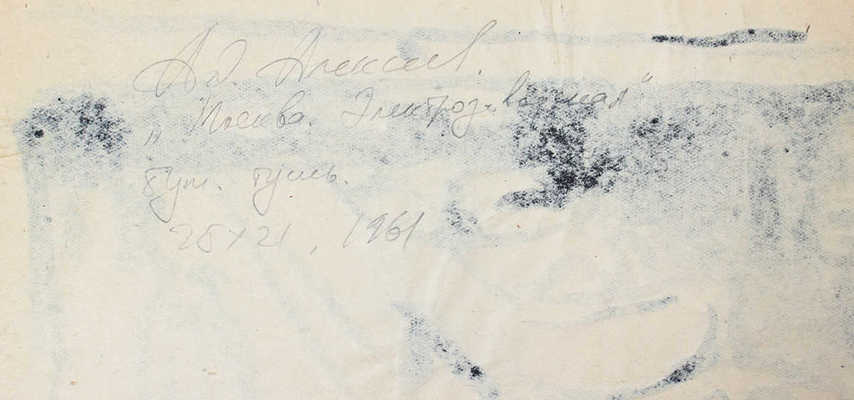 Ад. Алексеев.
„Москва. Электрозаводская“
бум. тушь.
28х21, 1961